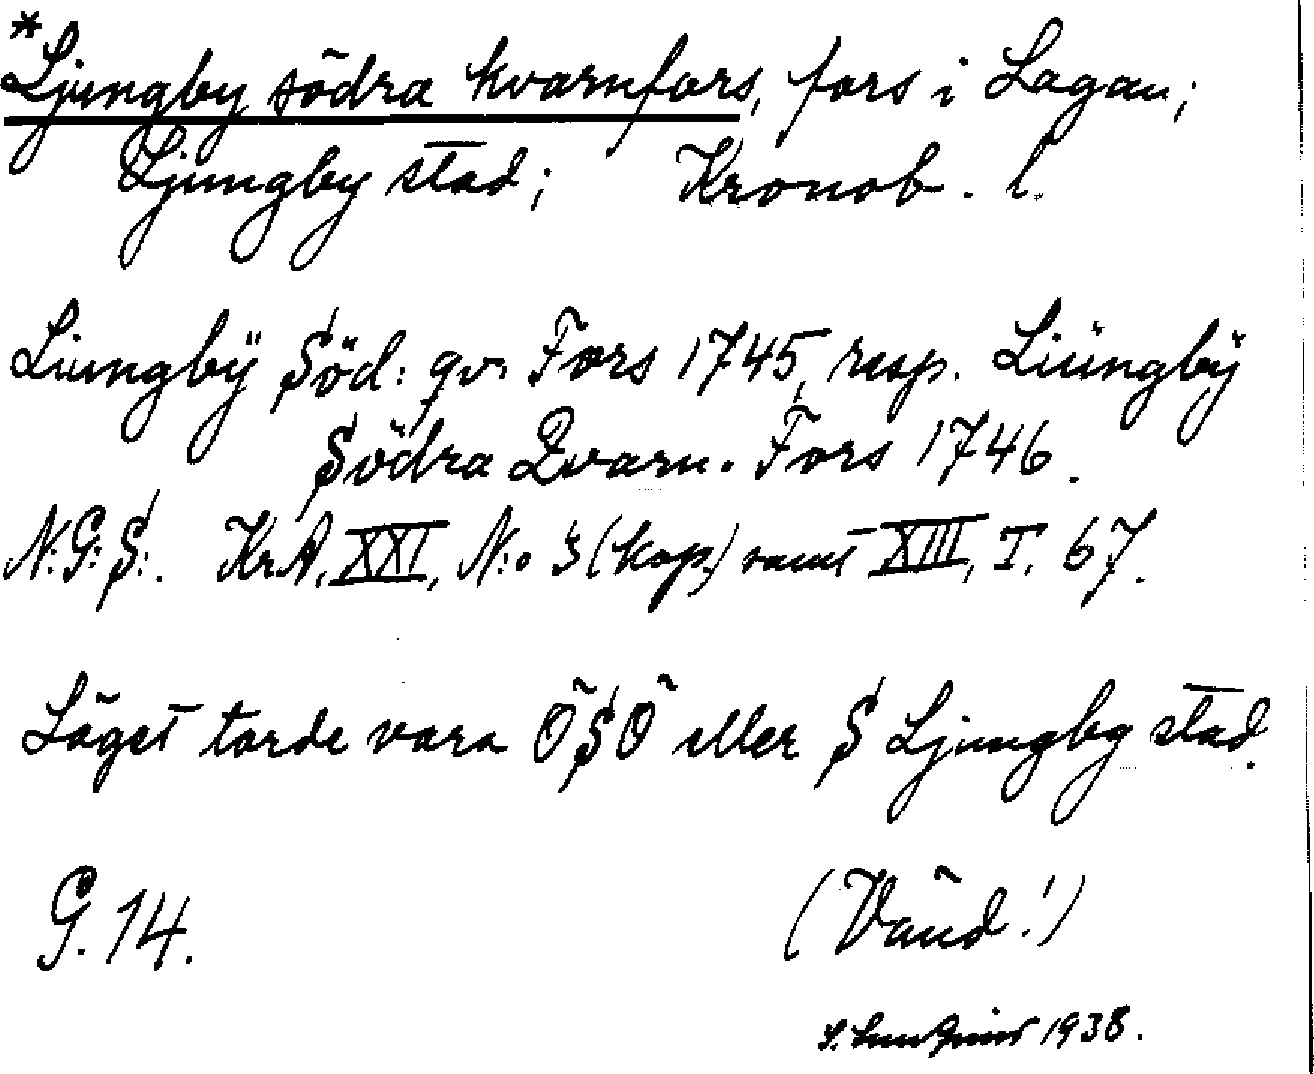 *Ljungby södra kvarnfors, fors i Lagan;
Ljungby stad; Kronob. l.
Liungbÿ Söd: qv. Fors 1745, resp. Liüngbÿ
Södra Qvarn. Fors 1746.
N:G:S:. KrA, XXI, N:o 3 (kop.) samt XIII, I, 67.
Läget torde vara ÖSÖ eller S Ljungby stad.
G. 14. (Vänd!)
1938.